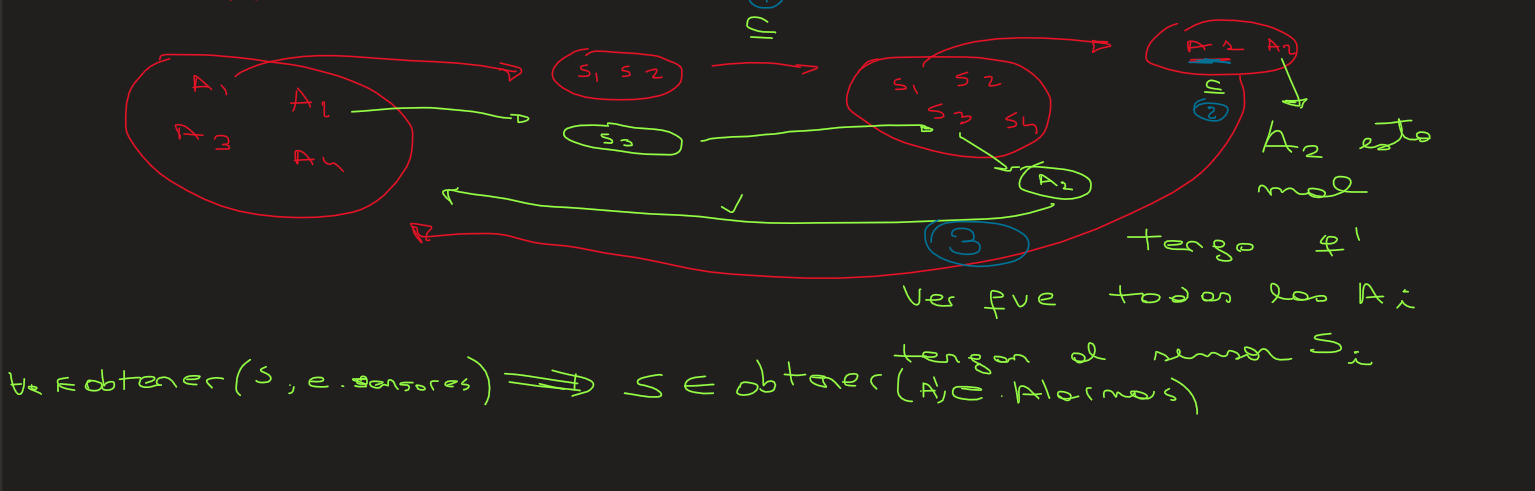 ⊆
A₁ A₂
A₃ A₄
S₁ S2
S₃
S₁ S2
S3 S4
A₂
A1 A2
⊆
2
3
✓
A₂ esto
mal
tengo q'
ver que todos los Ai
tengan al sensor Si
∈ obtener(S, e.sensores) ⟹ S ∈ obtener(A', e.Alarmas)